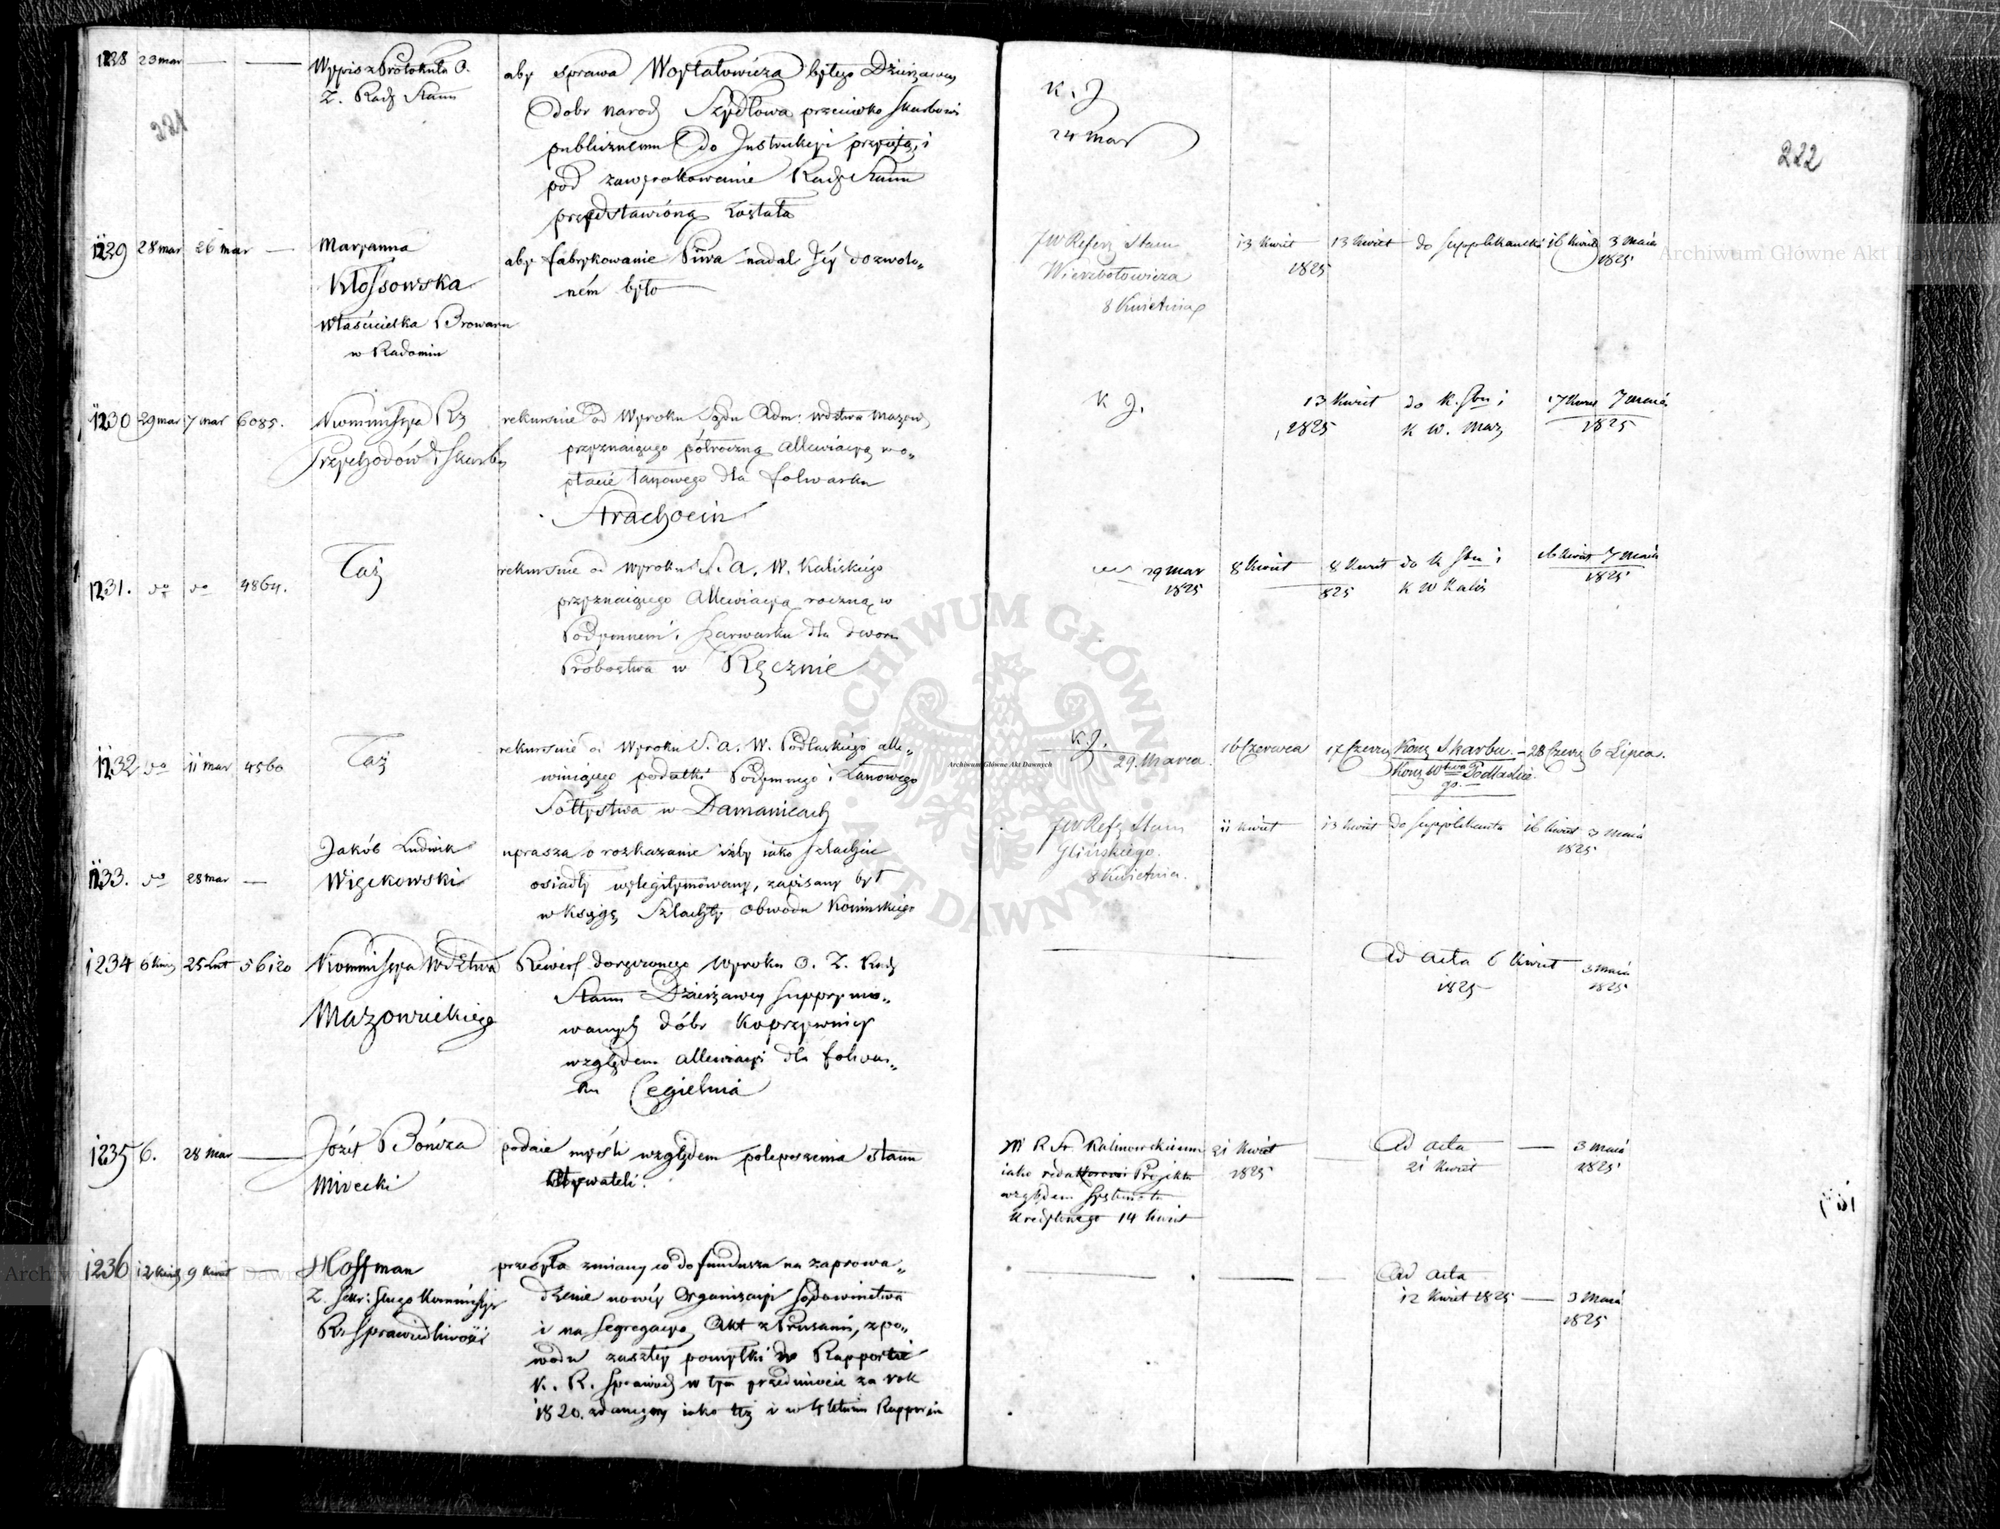 1228 23 mar
Wypis z Protokułu O.
Z. Rady Stanu
aby sprawa Woytałowicza byłego Dzierżawcy
Dobr narod Szydłowa przeciwko Skarbowi
publicznemu do Instrukcyi przyięta, i
pod zawyrokowanie Rady Stanu
przedstawioną została
K. J
24 mar
221
222
1229 28 mar 26 mar
Maryanna
Kłossowska
właścicielka Browaru
w Radomiu
aby fabrykowanie Piwa nadal Jéy dozwolo„
ném było
JW Refer Stanu
Wierzbołowicza
8 Kwietnia
13 Kwiet
1825
13 Kwiet do supplikantki 16 Kwiet 3 Maia
1825
1230 29 mar 7 mar 6085.
Kommissya Rz
Przychodów i Skarbu
rekursuie od Wyroku Sądu Adm: wdztwa Mazow
przyznaiącego półroczną allewiacyą w o„
płacie łanowego dla folwarku
Strachocin
K J.
13 Kwiet do K. Sbu i 17 Kwie 7 maia
1825 K W. Maz 1825
1231. do do 4864.
Taż
rekursuie od Wyroku S. A. W. Kaliskiego
przyznaiącego Allewiacyą roczną w
Podymnem i Szarwarku dla dworu
Probostwa w Ręcznie
29 mar
1825
8 Kwiet 8 Kwiet do K Sbu i 16 Kwiet 7 maia
825 K W Kalis 1825
1232 do 11 mar 4560
Taż
rekursuie od Wyroku S. A. W. Podlaskiego alle„
wiuiącego podatki Podymnego i Łanowego
Sołtystwa w Damanicach
K J.
29. Marca
16 Czerwca 17 Czerw Komy Skarbu 28 Czerw 6 Lipca.
Komy Wtwa Podlaskie
go.
1233. do 28 mar
Jakób Ludwik
Więckowski
uprasza o rozkazanie iżby iako Szlachcic
osiadły wylegitymowany, zapisany był
w księgę Szlachty Obwodu Konińskiego
JW Refer Stanu
Glińskiego.
8 Kwietnia.
11 Kwiet 13 Kwiet do supplikanta 16 Kwiet 3 Maia
1825
1234 6 Kwiet 25 Lut 56120
Kommissya Wdztwa
Mazowieckiego
Rewers doręczonego Wyroku O. Z. Rady
Stanu Dzierżawcy supprymo„
wanych dóbr Koprzywnicy
względem allewiacyi dla folwar„
ku Cegielnia
Ad acta 6 Kwiet 3 maia
1825 1825
1235 6. 28 mar
Józef Bończa
Mirecki
podaie myśli względem polepszenia stanu
Obywateli.
W R St. Kalinowskiemu
iako redaktorowi Projektu
względem Systematu
Kredytowego 14 Kwiet
21 Kwiet
1825
Ad acta
21 Kwiet
3 maia
1825
1236 12 Kwiet 9 Kwiet
Hoffman
Z. Sekr: Jlnego Kommissyi
Rz Sprawiedliwości
przesyła zmiany co do funduszu na zaprowa„
dzenie nowéy Organizacyi Sądownictwa
i na Segregacyą Akt z Prusami, z po„
wodu zaszłéy pomyłki w Rapporcie
K. R. Sprawied w tym przedmiocie za rok
1820. zdanym iako też i w 4 letnim Rapporcie
Ad acta
12 Kwiet 1825
3 Maia
1825
Archiwum Główne Akt Dawnych
ARCHIWUM GŁÓWNE AKT DAWNYCH
Archiwum Główne Akt Dawnych
Archiwum Główne Akt Dawnych